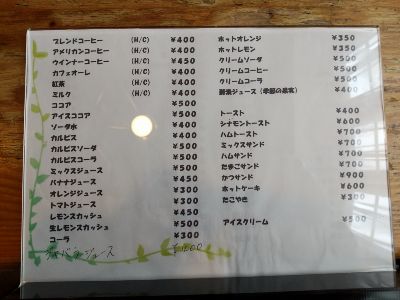 ブレンドコーヒー (H/C) ¥400
アメリカンコーヒー (H/C) ¥400
ウインナーコーヒー (H/C) ¥450
カフェオーレ (H/C) ¥400
紅茶 (H/C) ¥400
ミルク (H/C) ¥400
ココア ¥500
アイスココア ¥500
ソーダ水 ¥400
カルピス ¥400
カルピスソーダ ¥500
カルピスコーラ ¥500
ミックスジュース ¥500
バナナジュース ¥450
オレンジジュース ¥300
トマトジュース ¥300
レモンスカッシュ ¥450
生レモンスカッシュ ¥500
コーラ ¥300
ジュース
ホットオレンジ ¥350
ホットレモン ¥350
クリームソーダ ¥500
クリームコーヒー ¥500
クリームコーラ ¥500
酵素ジュース（季節の果実） ¥400
トースト ¥400
シナモントースト ¥600
ハムトースト ¥700
ミックスサンド ¥700
ハムサンド ¥700
たまごサンド ¥700
かつサンド ¥900
ホットケーキ ¥600
たこやき ¥300
アイスクリーム ¥500